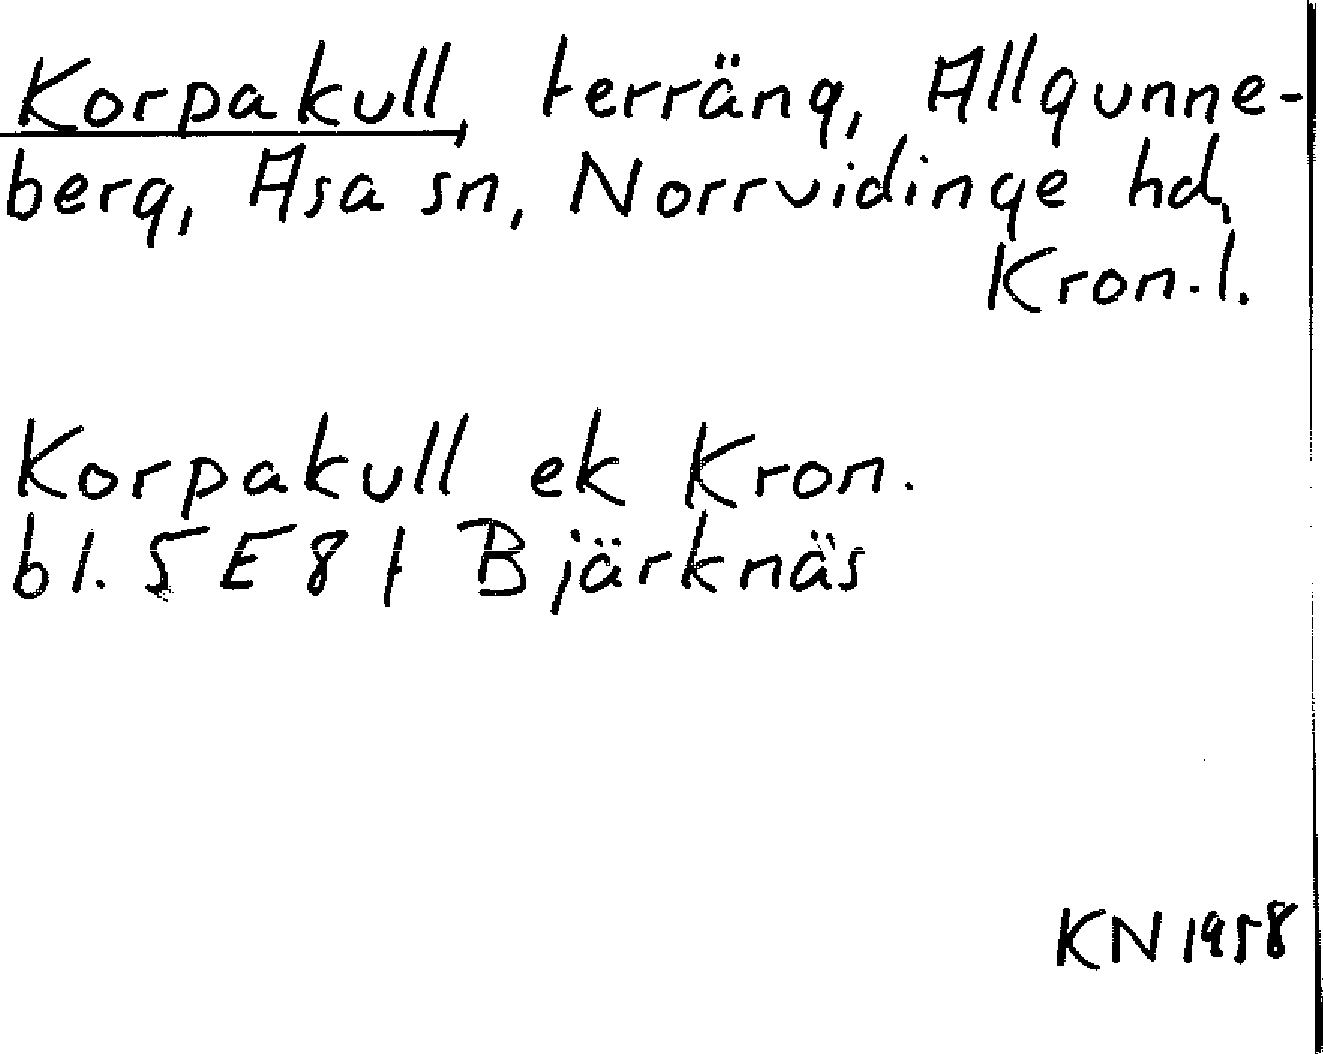 Korpakull, terräng, Allgunne-
berg, Asa sn, Norrvidinge hd,
Kron.l.
Korpakull ek Kron.
bl. 5 E 8 f Bjärknäs
KN 1958